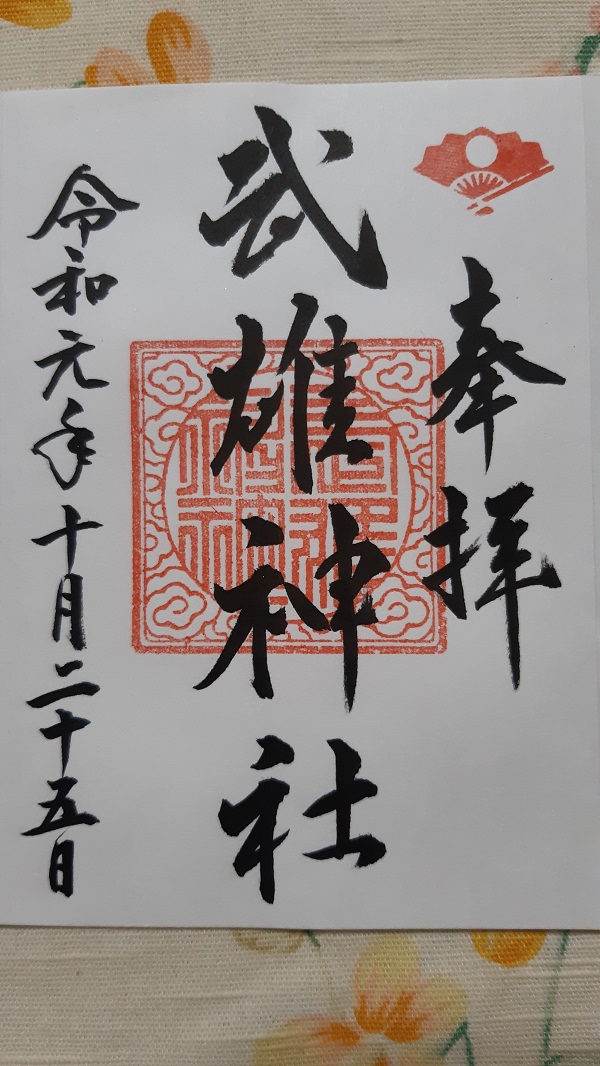 奉拝
武雄神社
令和元年十月二十五日